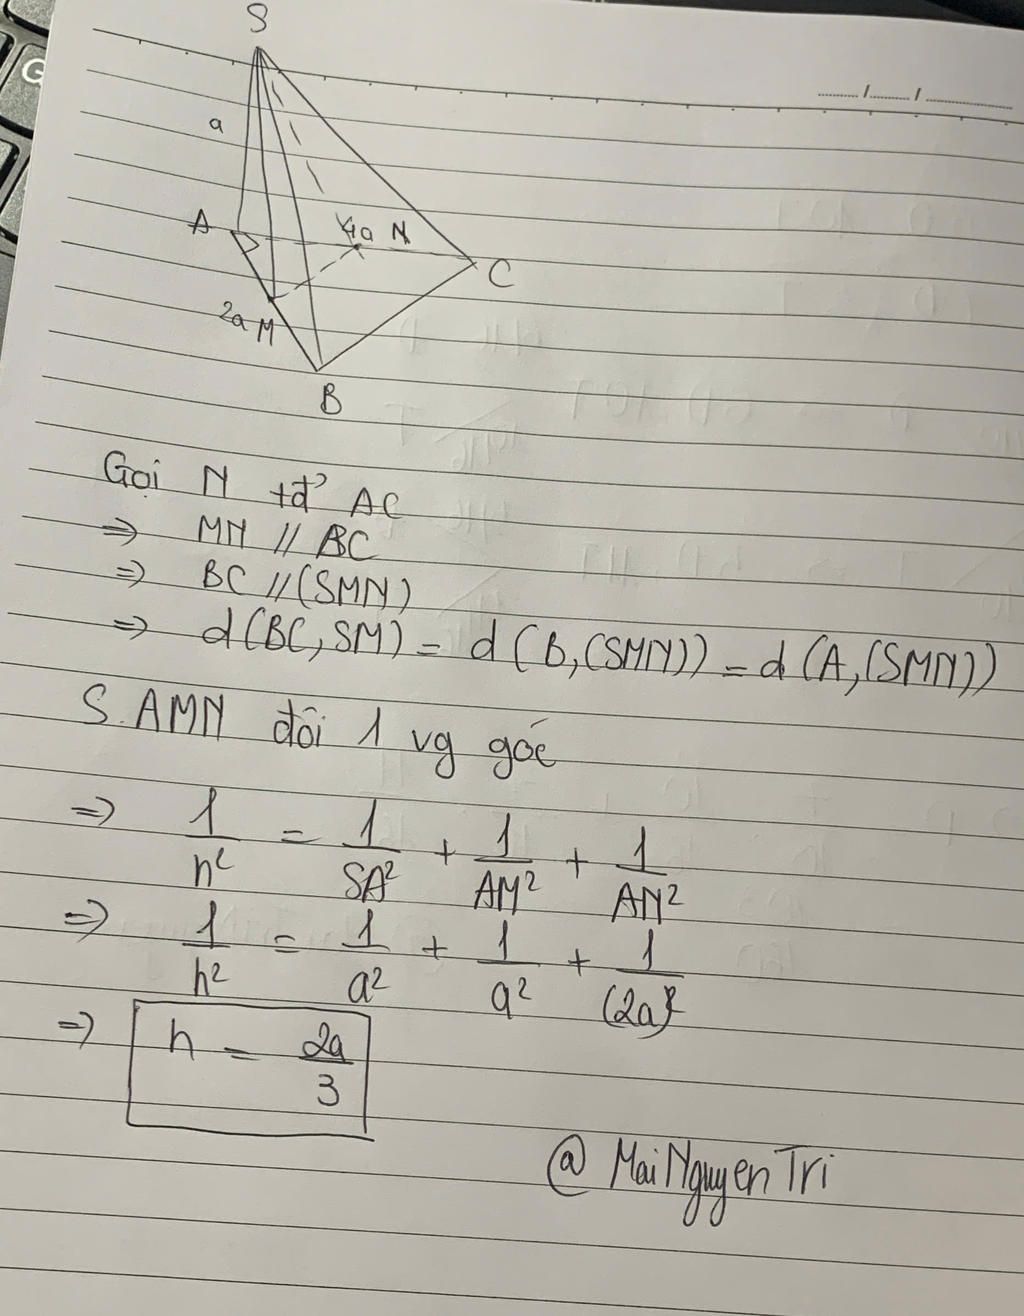 S
a
A
4a N
C
2a M
B
Gọi N tđ' AC
⇒ MN // BC
⇒ BC // (SMN)
⇒ d(BC, SM) = d(B, (SMN)) = d(A, (SMN))
S.AMN đôi 1 vg góc
⇒ 1/h² = 1/SA² + 1/AM² + 1/AN²
⇒ 1/h² = 1/a² + 1/a² + 1/(2a)²
⇒ h = 2a/3
@ MaiNguyenTri